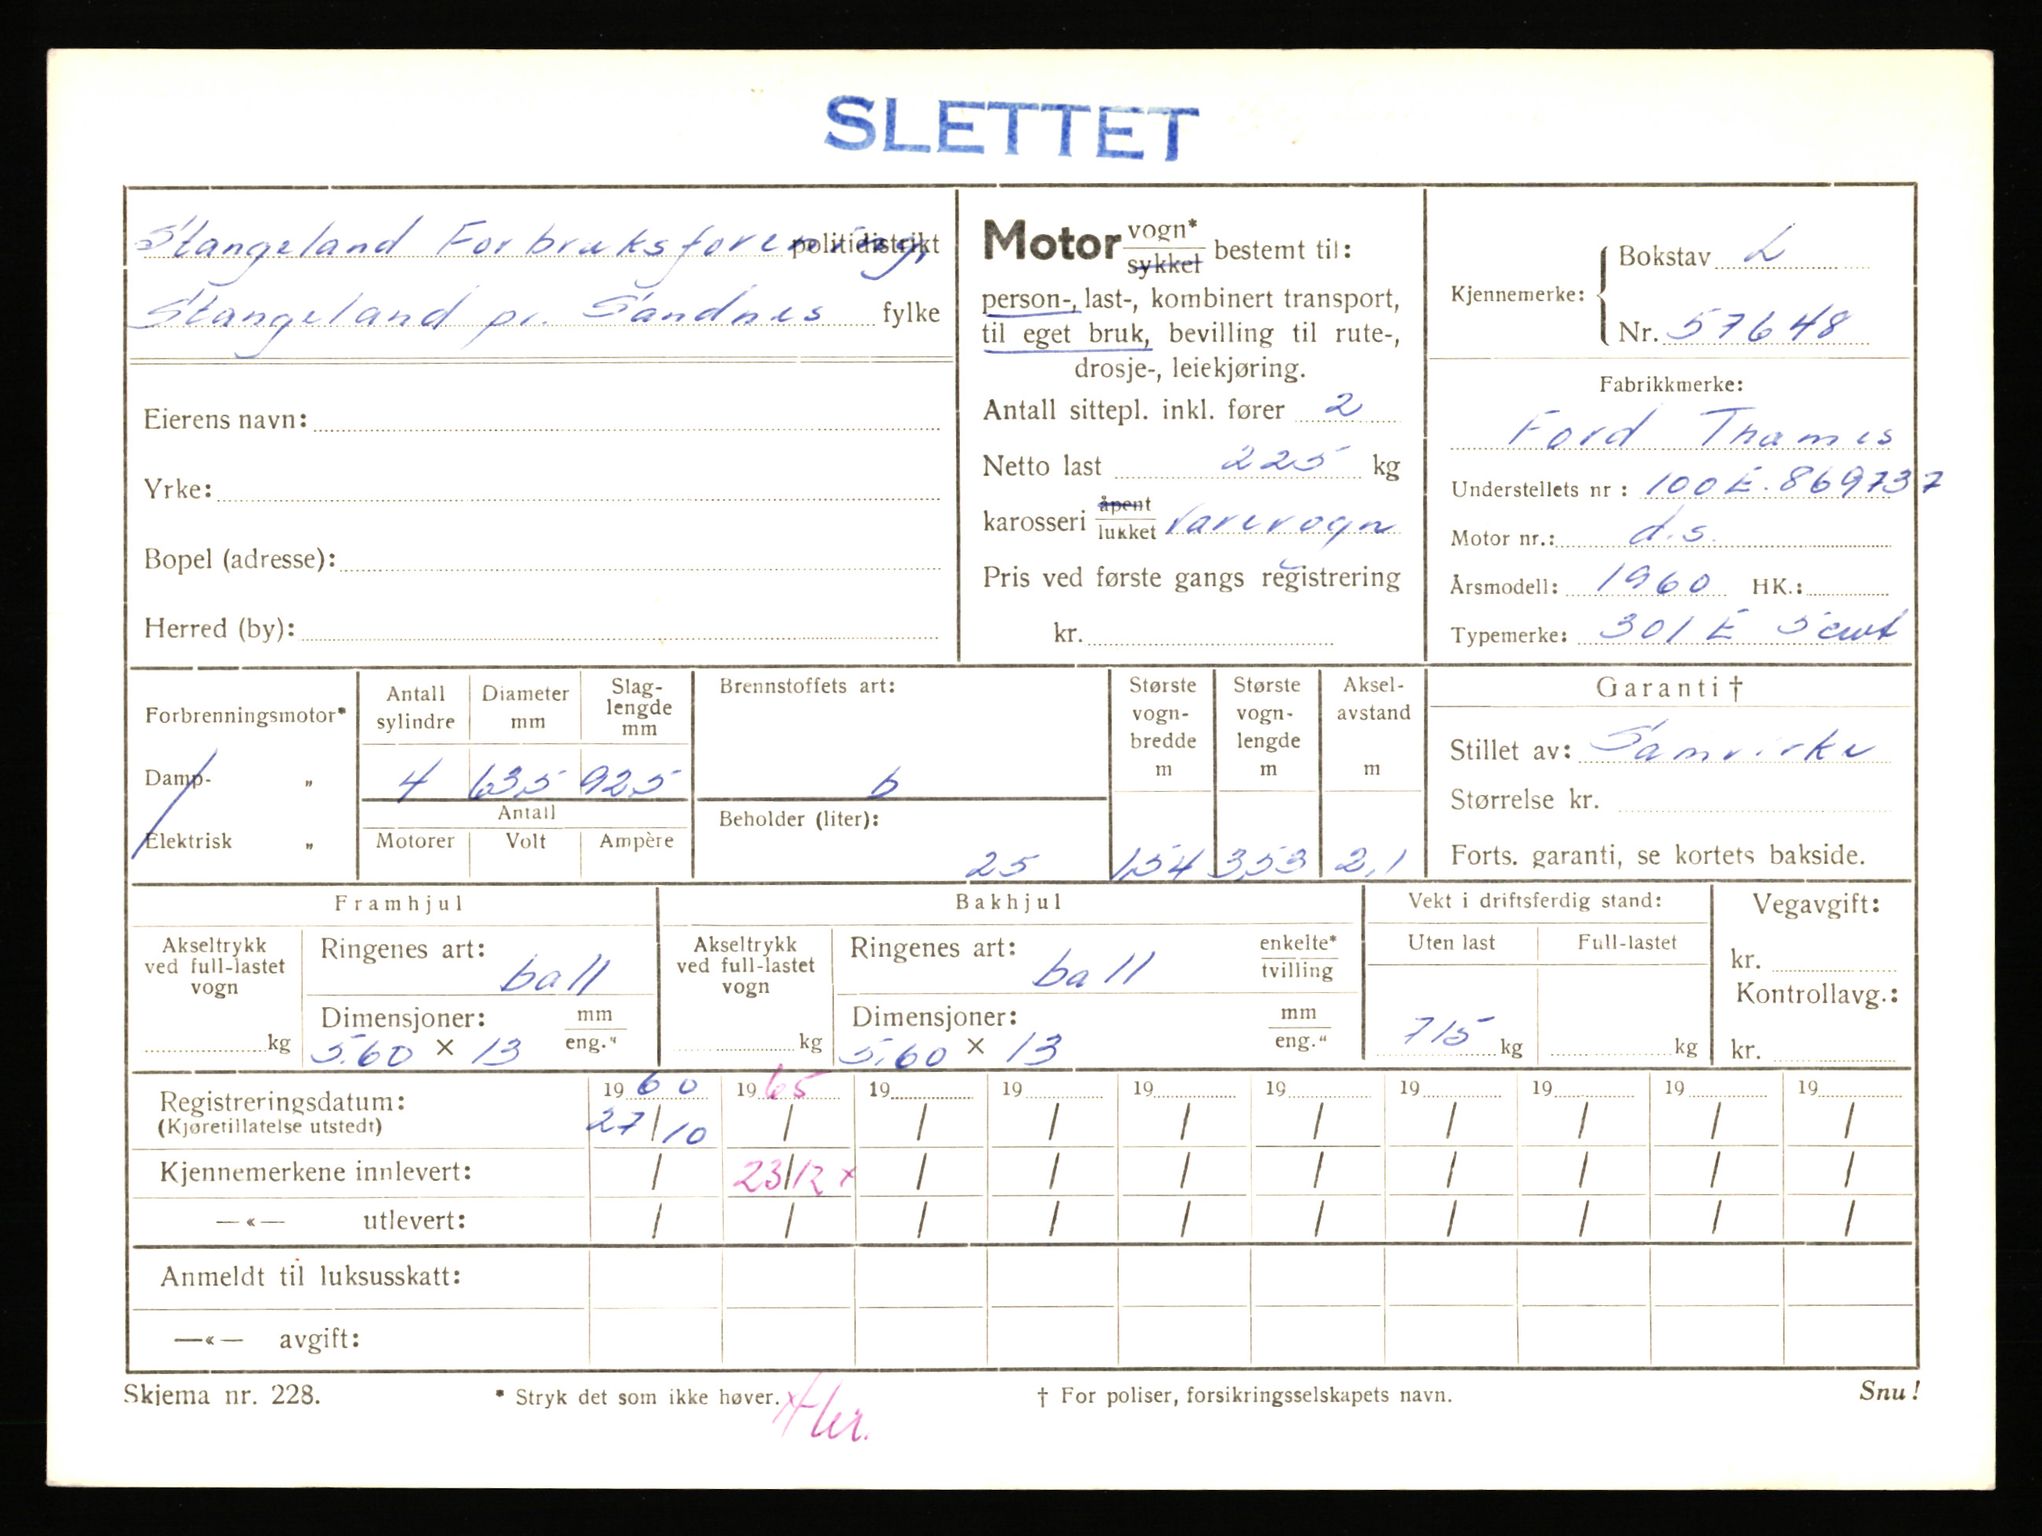 SLETTET
Stangeland Forbruksforening, politidistrikt
Stangeland pr. Sandnes fylke
Eierens navn:
Yrke:
Bopel (adresse):
Herred (by):
Motor vogn* sykkel bestemt til:
person-, last-, kombinert transport,
til eget bruk, bevilling til rute-,
drosje-, leiekjøring.
Antall sittepl. inkl. fører 2
Netto last 225 kg
karosseri åpent lukket Varevogn
Pris ved første gangs registrering
kr.
Kjennemerke:
Bokstav L
Nr. 57648
Fabrikkmerke:
Ford Thames
Understellets nr : 100E.869737
Motor nr.: d.s.
Årsmodell: 1960 HK.:
Typemerke: 301 E 5 cwt
Forbrenningsmotor*
Damp- „
Elektrisk „
Antall sylindre
Diameter mm
Slag-lengde mm
4 63,5 92,5
Antall
Motorer Volt Ampère
Brennstoffets art:
b
Beholder (liter):
25
Største vogn-bredde m
1,54
Største vogn-lengde m
3,53
Aksel-avstand m
2,1
Garanti †
Stillet av: Samvirke
Størrelse kr.
Forts. garanti, se kortets bakside.
Framhjul
Akseltrykk ved full-lastet vogn
kg
Ringenes art:
ball
Dimensjoner: mm eng."
5.60 × 13
Bakhjul
Akseltrykk ved full-lastet vogn
kg
Ringenes art: enkelte* tvilling
ball
Dimensjoner: mm eng."
5.60 × 13
Vekt i driftsferdig stand:
Uten last Full-lastet
715 kg kg
Vegavgift:
kr.
Kontrollavg.:
kr.
Registreringsdatum: 1960 1965 19 19 19 19 19 19 19 19
(Kjøretillatelse utstedt) 27/10 / / / / / / / / /
Kjennemerkene innlevert: / 23/12 x / / / / / / / /
—«— utlevert: / / / / / / / / / /
Anmeldt til luksusskatt:
—«— avgift:
Skjema nr. 228.
* Stryk det som ikke høver.
† For poliser, forsikringsselskapets navn.
Snu!